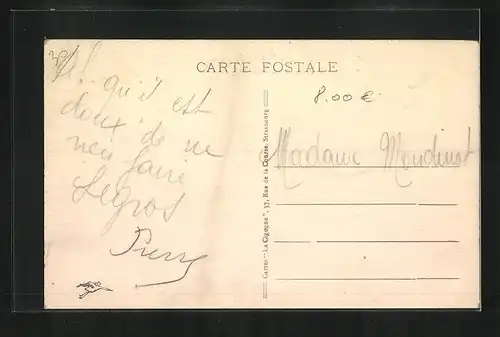 CARTE POSTALE
8.00 €
Ah! qu'il est
doux de ne
rien faire
Legros
Madame Mondinot
Cartes "La Cigogne", 37, Rue de la Course, Strasbourg